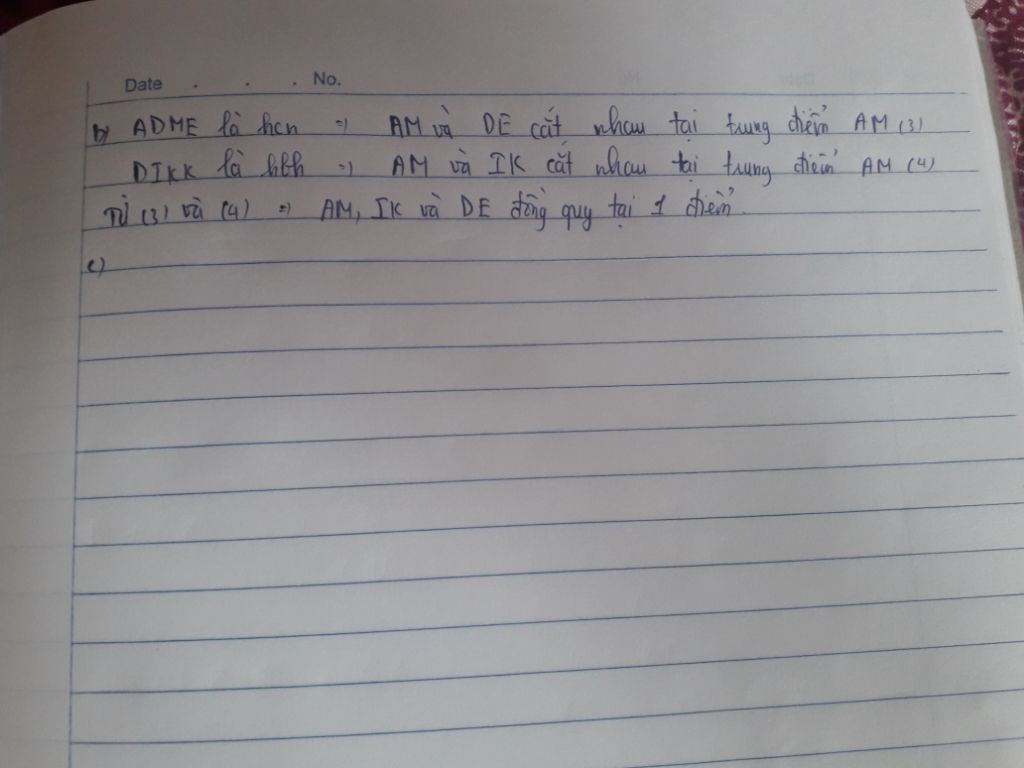 Date . . . No.
b) ADME là hcn => AM và DE cắt nhau tại trung điểm AM (3)
DIKK là hbh => AM và IK cắt nhau tại trung điểm AM (4)
Từ (3) và (4) => AM, IK và DE đồng quy tại 1 điểm.
c)